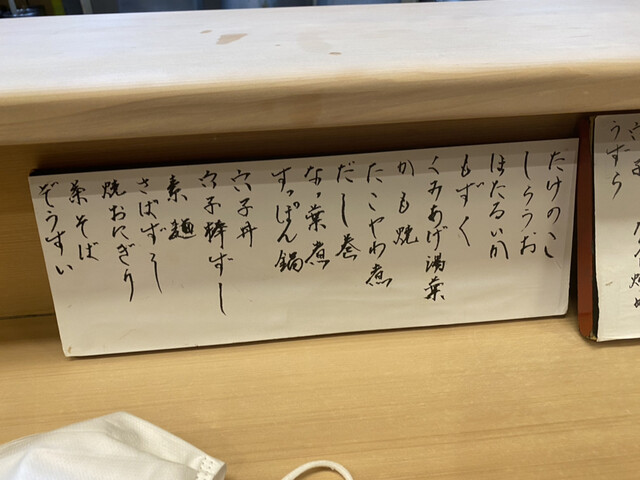 うずら
たけのこ
しらうお
ほたるいか
もずく
くみあげ湯葉
かも焼
たこやわ煮
だし巻
なっ葉煮
すっぽん鍋
穴子丼
穴子棒ずし
素麺
さばずし
焼おにぎり
茶そば
ぞうすい